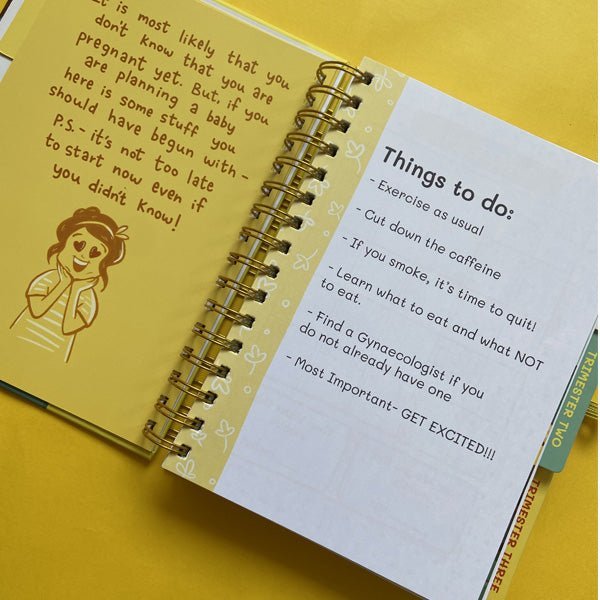 It is most likely that you
don't know that you are
pregnant yet. But, if you
are planning a baby
here is some stuff you
should have begun with -
P.S. - it's not too late
to start now even if
you didn't know!
Things to do:
- Exercise as usual
- Cut down the caffeine
- If you smoke, it's time to quit!
- Learn what to eat and what NOT
to eat.
- Find a Gynaecologist if you
do not already have one
- Most Important- GET EXCITED!!!
TRIMESTER TWO
TRIMESTER THREE